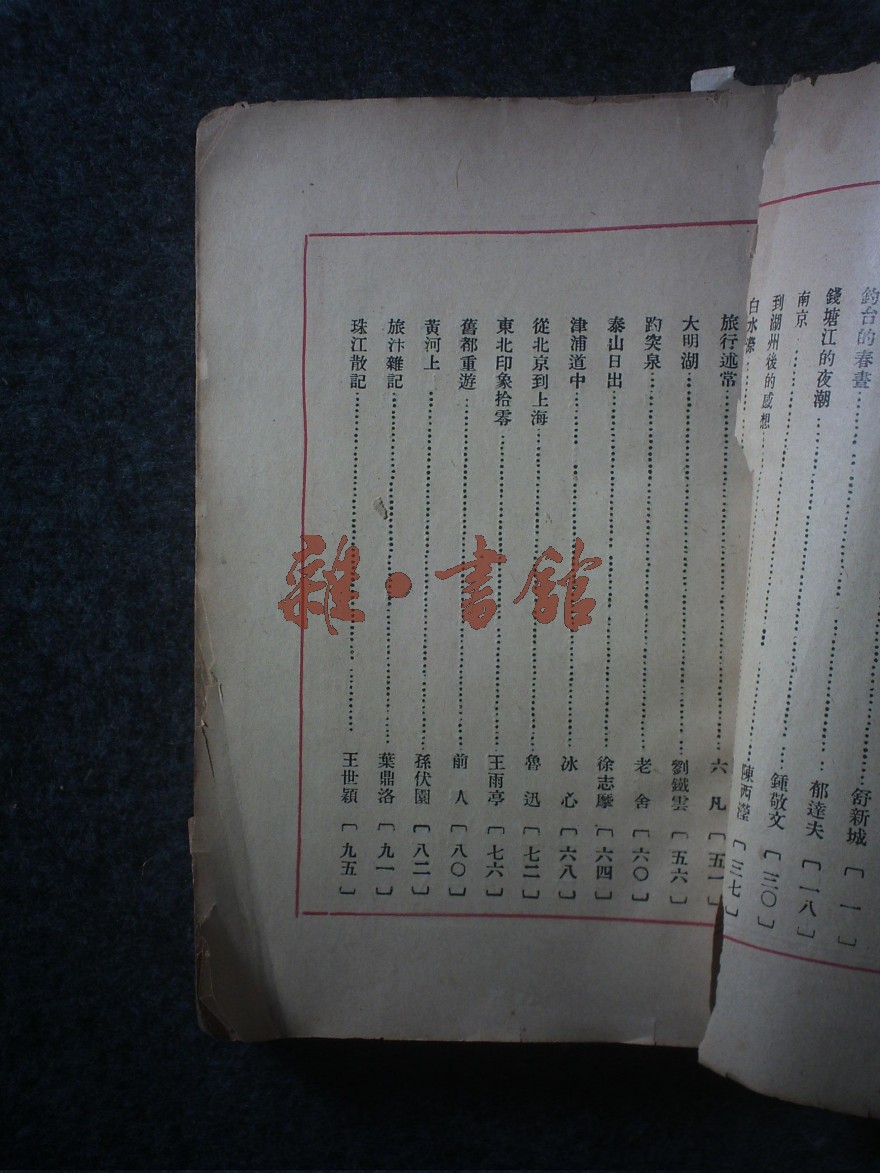 釣台的春晝………舒新城〔一〕
錢塘江的夜潮………郁達夫〔一八〕
南京………鍾敬文〔三〇〕
到湖州後的感想………陳西瀅〔三七〕
白水漈………
旅行述常………六凡〔五一〕
大明湖………劉鐵雲〔五六〕
趵突泉………老舍〔六〇〕
泰山日出………徐志摩〔六四〕
津浦道中………冰心〔六八〕
從北京到上海………魯迅〔七二〕
東北印象拾零………王雨亭〔七六〕
舊都重遊………前人〔八〇〕
黃河上………孫伏園〔八二〕
旅汴雜記………葉鼎洛〔九一〕
珠江散記………王世穎〔九五〕
雜·書館